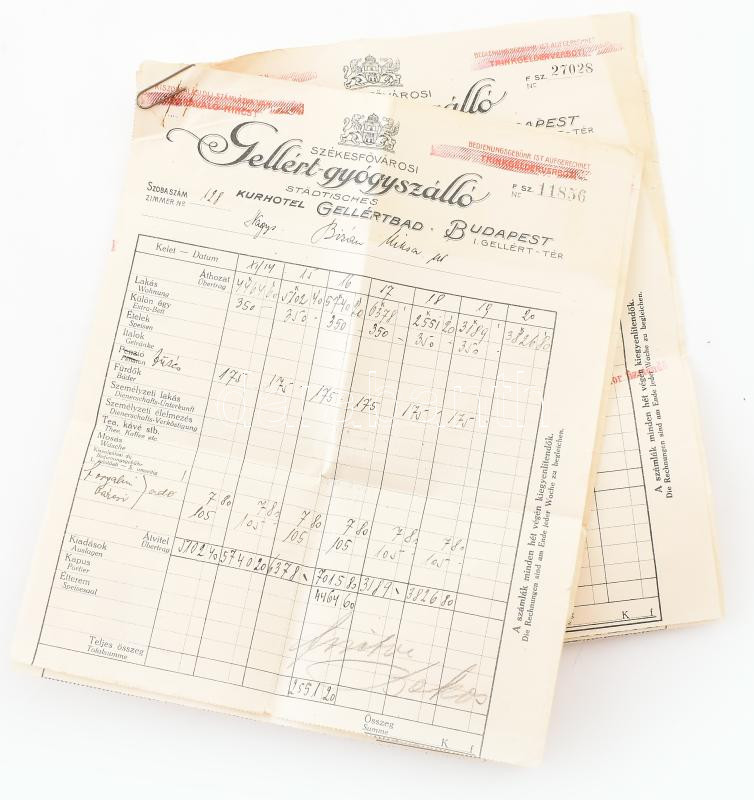 BEDIENUNGSGEBÜHR IST AUFGERECHNET
TRINKGELDERVERBOT!
F. SZ. 27028
No
BUDAPEST
BEDIENUNGSGEBÜHR IST AUFGERECHNET
TRINKGELDERVERBOT!
F. SZ. 11856
No
SZÉKESFŐVÁROSI
Gellért-gyógyszálló
STÁDTISCHES
KURHOTEL GELLÉRTBAD · BUDAPEST
I. GELLÉRT-TÉR
SZOBASZÁM
ZIMMER No 128
Nagys.
Kelet — Datum XI/14 15 16 17 18 19 20
Áthozat
Übertrag 4464 60 5102 40 5740 20 6378 2551 20 3189 3826 80
Lakás
Wohnung 350 350 350 350 350 350
Külön ágy
Extra-Bett
Ételek
Speisen
Italok
Getränke
Penzió
Pension
Fürdők
Bäder 175 175 175 175 175 175
Személyzeti lakás
Dienerschafts-Unterkunft
Személyzeti élelmezés
Dienerschafts-Verköstigung
Tea, kávé stb.
Thee, Kaffee etc.
Mosás
Wäsche
Forgalmi adó 7 80 7 80 7 80 7 80 7 80 7 80
105 105 105 105 105 105
Átvitel
Übertrag 5102 40 5740 20 6378 7015 80 3189 3826 80
Kiadások
Auslagen 4464 60
Kapus
Portier
Étterem
Speisesaal
Teljes összeg
Totalsumme 2551 20
Összeg
Summe K f
A számlák minden hét végén kiegyenlítendők.
Die Rechnungen sind am Ende jeder Woche zu begleichen.
A számlák minden hét végén kiegyenlítendők.
Die Rechnungen sind am Ende jeder Woche zu begleichen.
K f